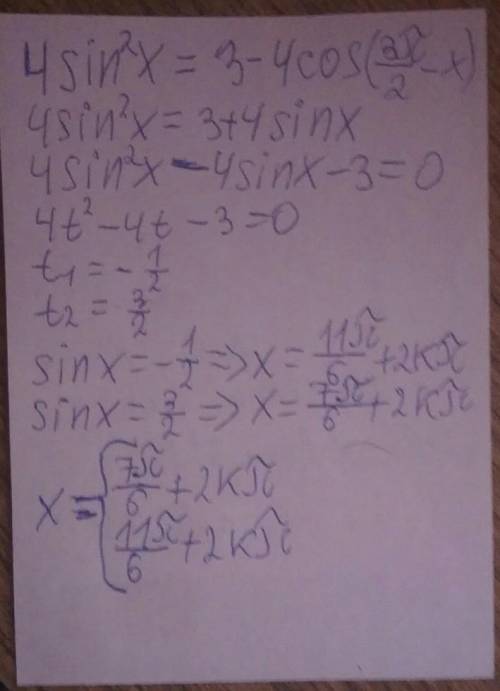 4sin²x = 3-4cos(3π/2 - x)
4sin²x = 3+4sinx
4sin²x - 4sinx - 3 = 0
4t² - 4t - 3 = 0
t₁ = -1/2
t₂ = 3/2
sinx = -1/2 => x = 11π/6 + 2Kπ
sinx = 3/2 => x = 7π/6 + 2Kπ
x = [7π/6 + 2Kπ
11π/6 + 2Kπ